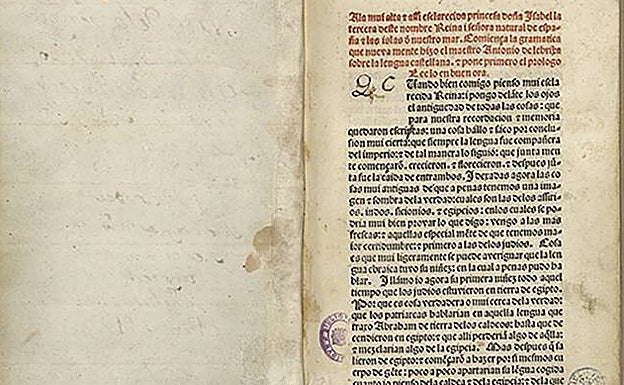 A la mui alta ⁊ assi esclarecida princesa doña Isabel la
tercera deste nombre Reina i señora natural de espa
ña ⁊ las islas d̃ nuestro mar. Comiença la gramatica
que nueva mente hizo el maestro Antonio de lebrixa
sobre la lengua castellana. ⁊ pone primero el prologo
Lee lo en buen ora.
Q C Uando bien comigo pienso mui escla
recida Reina: i pongo delãte los ojos
el antiguedad de todas las cosas: que
para nuestra recordacion ⁊ memoria
quedaron escriptas: una cosa hallo ⁊ sãco por conclu
sion mui cierta: que siempre la lengua fue compañera
del imperio: ⁊ de tal manera lo siguió: que junta men
te començarõ. crecieron. ⁊ florecieron. ⁊ despues jũ
ta fue la caida de entrambos. I dexadas agora las co
sas mui antiguas de que a penas tenemos una ima
gen ⁊ sombra de la verdad: cuales son las delos assiri
os. indos. sicionios. ⁊ egipcios: enlos cuales se po
dria mui bien provar lo que digo: vengo a las mas
frescas: ⁊ aquellas especial mẽte de que tenemos ma
ior certidumbre: ⁊ primero a las delos judios. Cosa
es que mui ligeramente se puede averiguar que la len
gua ebraica tuvo su niñez: en la cual a penas pudo ha
blar. I llámo io agora su primera niñez todo aquel
tiempo que los judios estuvieron en tierra de egipto.
Por que es cosa verdadera o mui cerca dela verdad:
que los patriarcas hablarian en aquella lengua que
traxo Abraham de tierra delos caldeos: hasta que de
cendieron en egipto: ⁊ que alli perderian algo de aq̃lla:
⁊ mezclarian algo dela egipcia. Mas despues q̃ sa
lieron de egipto: ⁊ començarõ a hazer por si mesmos cu
erpo de gẽte: poco a poco apartarian su lẽgua cogida
cuanto io pienso dela caldea ⁊ dela egipcia: ⁊ dela que